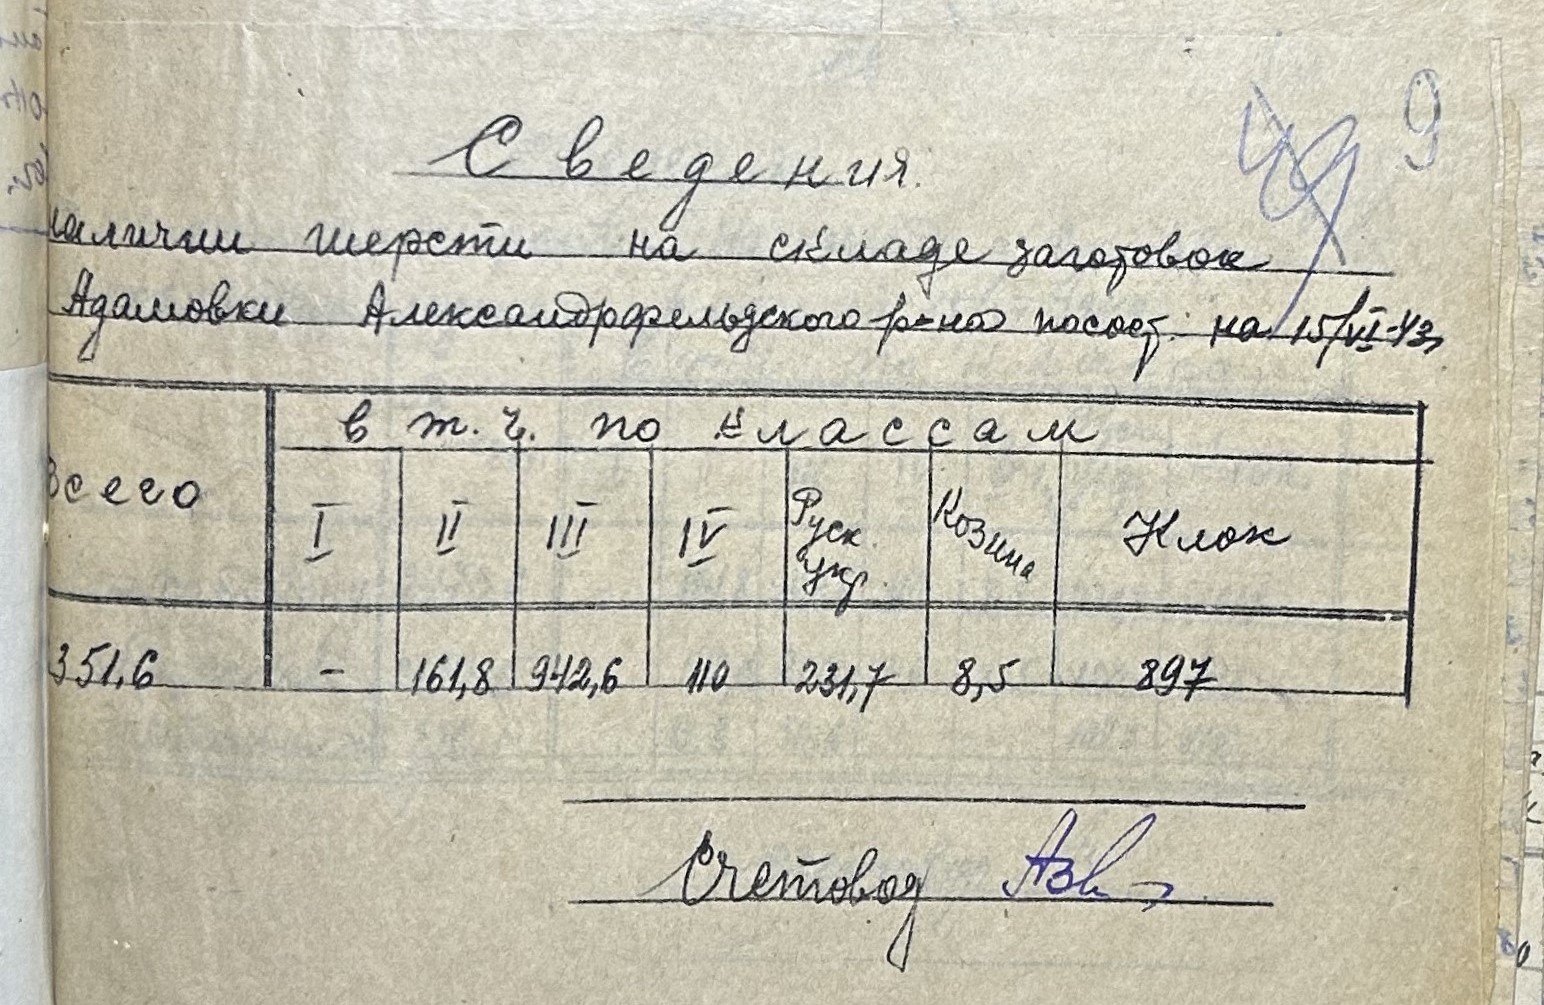 9
49
Сведения.
наличии шерсти на складе заготовок
Адамовки Александрфельдского р-на посост. на 15/VI-43,
Всего
в т.ч. по классам
I II III IV Руск. укр. Козина Клок
351,6 - 161,8 942,6 110 231,7 8,5 897
Счетовод